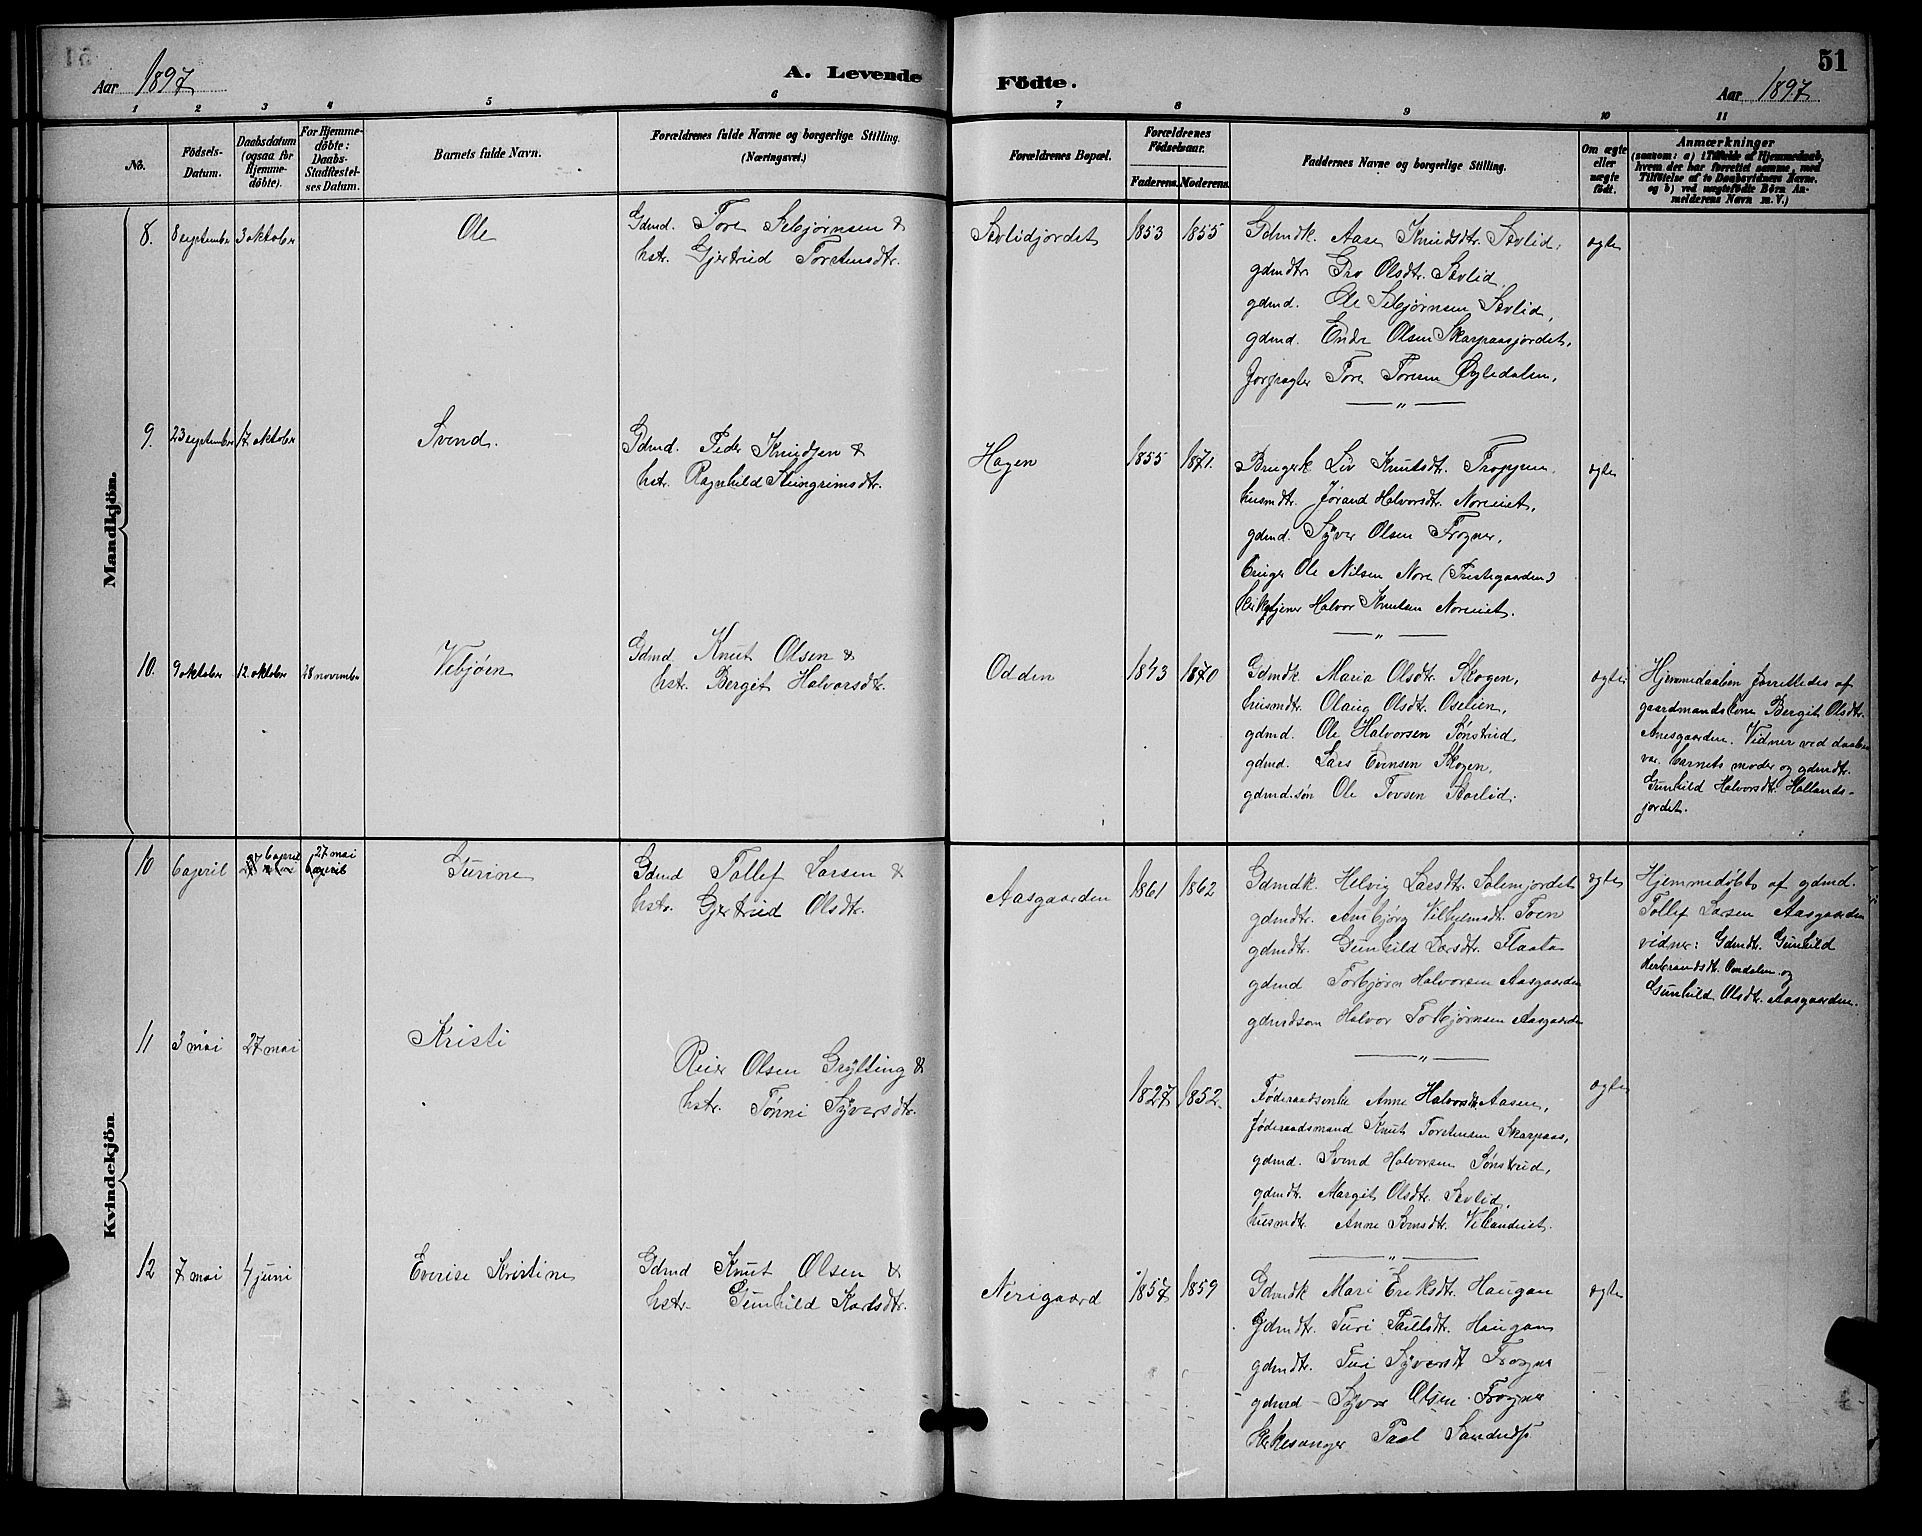 51
Aar 1897
A. Levende
Födte.
Aar 1897
1 2 3 4 5 6
7 8 9 10 11
No.
Födsels-
Datum.
Daabsdatum
(ogsaa for
Hjemme-
döbte).
For Hjemme-
döbte:
Daabs-
Stadfæstel-
ses Datum.
Barnets fulde Navn.
Forældrenes fulde Navne og borgerlige Stilling.
(Næringsvei.)
Forældrenes Bopæl.
Forældrenes
Födselsaar.
Faderens. Moderens.
Faddernes Navne og borgerlige Stilling.
Om ægte
eller
uægte
födt.
Anmærkninger
(saasom: a) i Tilfælde af Hjemmedaab,
hvem der har forrettet samme, med
Tilföielse af to Daabsvidners Navne,
og b) ved uægtefödte Börn An-
melderens Navn m. V.)
Mandkjön.
8. 8 september 3 oktober
Ole
Gdmd. Tore Sebjørnsen &
hstr. Gjertrud Torstensdtr.
Sevlidjordet
1853 1855
Gdmdk. Aase Knudsdtr. Sevlid,
gdmdtr. Gro Olsdtr. Sevlid,
gdmd. Ole Sebjørnsen Sevlid,
gdmd. Endre Olsen Skarpaasjordet,
forpagter Tore Toresen Øygledalen,
— " —
ægte
9. 23 september 17 oktober
Svend.
Gdmd. Peder Knudsen &
hstr. Ragnhild Steingrimsdtr.
Hagen
1855 1871.
Brugerk. Liv Knutsdtr. Froppen,
husmdtr. Jørand Halvorsdtr. Noreiet,
gdmd. Syver Olsen Frogner,
bruger Ole Nilsen Nore (Prestegaarden)
kirketjener Halvor Knutsen Noreiet.
— " —
ægte
10. 9 oktober 12 oktober 28 november
Vebjøen
Gdmd. Knut Olsen &
hstr. Bergit Halvorsdtr.
Odden
1843 1870
Gdmdk. Maria Olsdtr. Skogen,
husmdtr. Olaug Olsdtr. Oselien,
gdmd. Ole Halvorsen Sønstrud,
gdmd. Lars Evensen Skogen,
gdmd.søn Ole Tovsen Aarlid.
ægte
Hjemmedaaben forrettedes af
gaardmandskone Bergit Olsdtr.
Anesgaarden. Vidner ved daaben
var barnets moder og gdmdtr.
Gunhild Halvorsdtr. Hollands-
jordet.
Kvindekjön
10 6 april 6 april
27 mai
6 april
Gurine
Gdmd Tollef Larsen &
hstr. Gjertrud Olsdtr.
Aasgaarden
1861 1862
Gdmdk. Helvig Larsdtr. Solemjordet
gdmdtr. Anbjørg Vilhelmsdt. Toen
gdmdtr. Gunhild Larsdtr. Flaata
gdmd Torbjørn Halvorsen Aasgaarden
gdmdsøn Halvor Torbjørnsen Aasgaarden
— " —
ægte
Hjemmedøbt af gdmd.
Tollef Larsen Aasgaarden
vidner: Gdmdt. Gunhild
Herbrandsdt. Oendalen og
Gunhild Olsdt. Aasgaarden.
11 3 mai 27 mai
Kristi
Reier Olsen Grytting &
hstr. Tønni Syversdtr.
1827 1852.
Føderaadsenke Anne Halvorsdt. Aasen,
føderaadsmand Knut Torstensen Skarpaas,
gdmd. Svend Halvorsen Sønstrud,
gdmdt. Margit Olsdtr. Sevlid,
husmdtr. Anne Svensdtr. Vikaneiet.
— " —
ægte
12 7 mai 4 juni
Everise Kristine
Gdmd Knut Olsen &
hstr. Gunhild Karlsdtr.
Nerigaard
1857 1859
Gdmdk Mari Eriksdtr. Haugan
Gdmdtr. Turi Paulsdtr. Haugan
gdmdtr. Turi Syversdt. Frogner
gdmd - Syver Olsen Frogner
Kirkesanger Paal
ægte